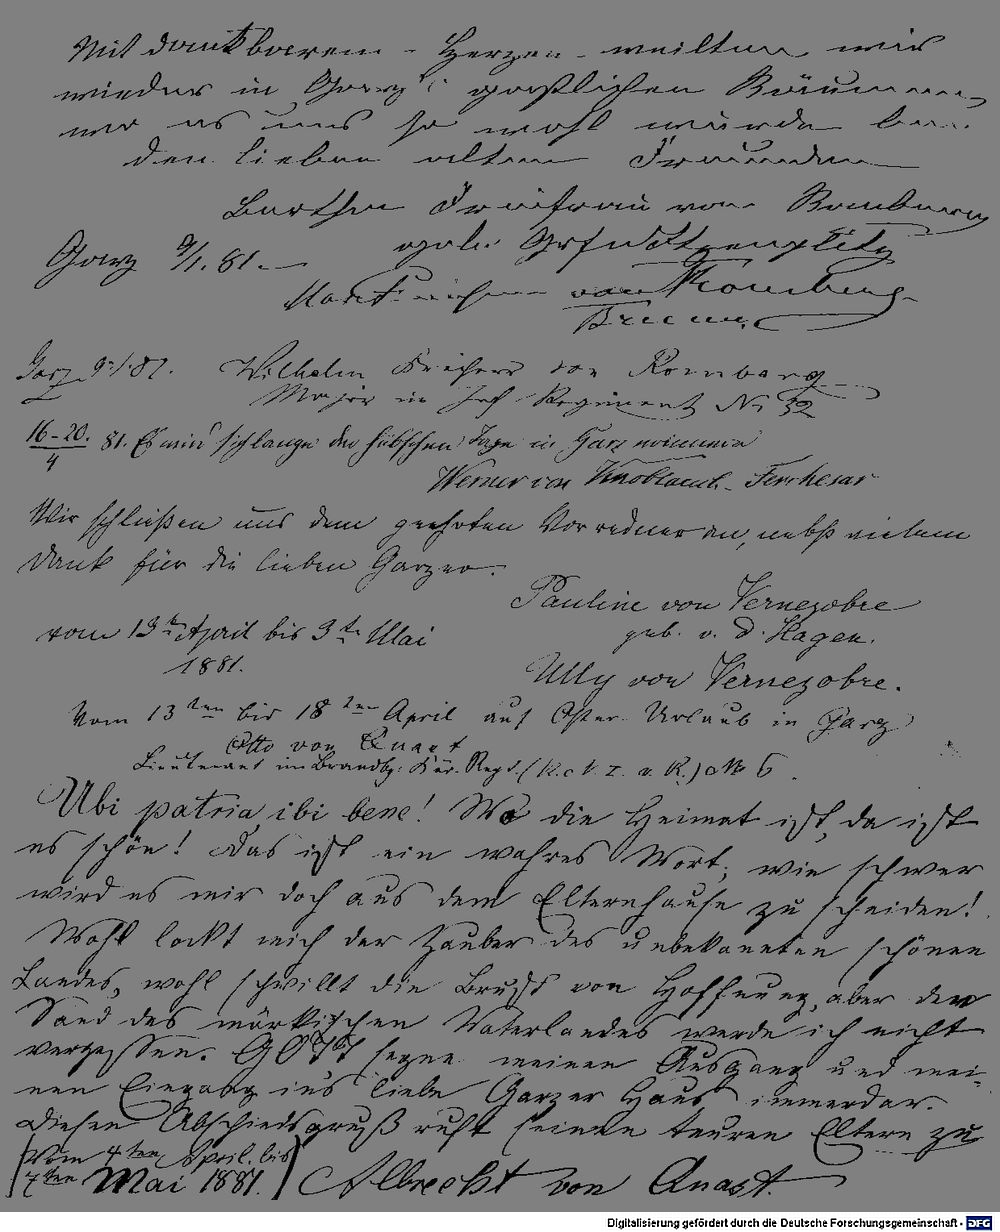 Mit dankbarem Herzen weilten wir
wieder in Garz's gastlichen Räumen,
wo es uns so wohl wurde bei
den lieben alten Freunden
Barthe Freifrau von Romberg
geb. Gräfin
Garz 9/1. 81.
von Romberg
Brunn.
Garz 9/1. 81. Wilhelm Freiherr von Romberg
Major im Inf Regiment No 32
16-20./4 81. Es sind so lange die hübschen Tage in Garz
Werner von Knoblauch - Ferchesar
Wir schließen uns dem geehrten Vorredner an, nebst vielem
Dank für die lieben Garzer.
Pauline von Vernezobre
geb. v. d. Hagen.
vom 13ten April bis 3te Mai
1881.
Ully von Vernezobre.
Vom 13ten bis 18ten April auf Oster-Urlaub in Garz
Otto von Quast
Lieutenant im Brandbg: Kür. Regt. (K. N. I. v. R.) No 6.
Ubi patria ibi bene! Wo die Heimat ist, da ist
es schön! Das ist ein wahres Wort; wie schwer
wird es mir doch aus dem Elternhause zu scheiden!
Wohl lockt mich der Zauber des unbekannten schönen
Landes, wohl schwillt die Brust von Hoffnung, aber den
Sand des märkischen Vaterlandes werde ich nicht
vergessen. GOTT segne meinen Ausgang und mei-
nen Eingang ins liebe Garzer Haus immerdar.
Diesen Abschiedsgruß ruft seinen teuren Eltern zu
(Vom 4ten April bis
7ten Mai 1881.) Albrecht von Quast.
Digitalisierung gefördert durch die Deutsche Forschungsgemeinschaft - DFG